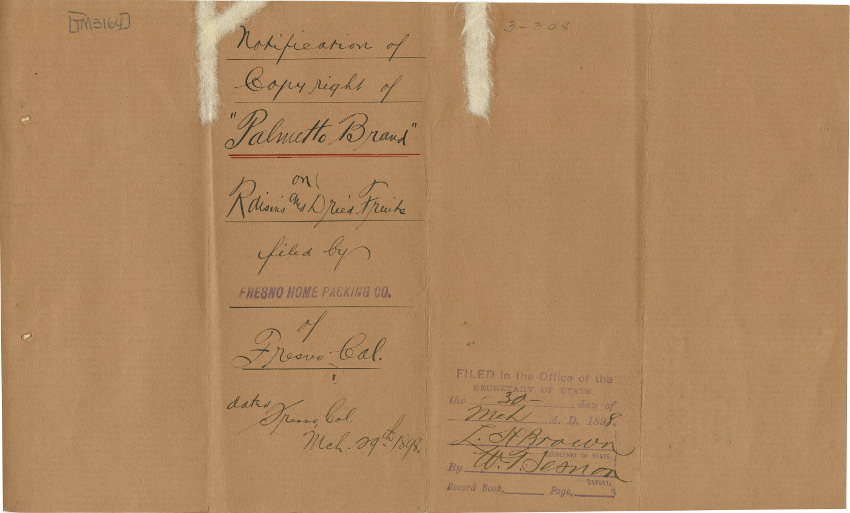 [TM3164]
3-308
Notification of
Copyright of
"Palmetto Brand"
on
Raisins and Dried Fruits
filed by
FRESNO HOME PACKING CO.
of
Fresno Cal.
dated
Fresno, Cal.
Mch. 29th 1898.
FILED in the Office of the
SECRETARY OF STATE
the 30- day of
Mch A. D. 1898.
L. H Brown
SECRETARY OF STATE.
By W. T. Sesnon
DEPUTY.
Record Book, Page,